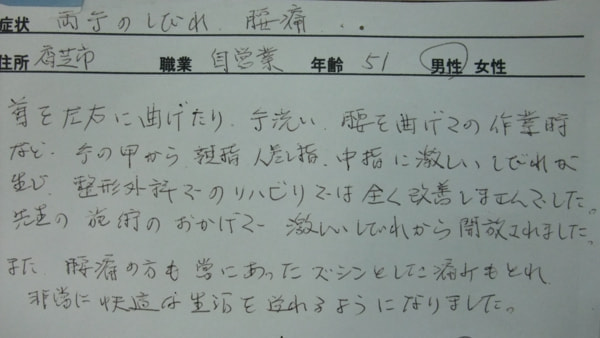 症状 両手のしびれ 腰痛 . .
住所 香芝市 職業 自営業 年齢 51 男性 女性
首を左右に曲げたり、手洗い、腰を曲げての作業時
など、手の甲から親指、人差し指、中指に激しいしびれが
生じ、整形外科でのリハビリでは全く改善しませんでした。
先生の施術のおかげで激しいしびれから開放されました。
また、腰痛の方も常にあったズシンとした痛みもとれ
非常に快適な生活を送れるようになりました。